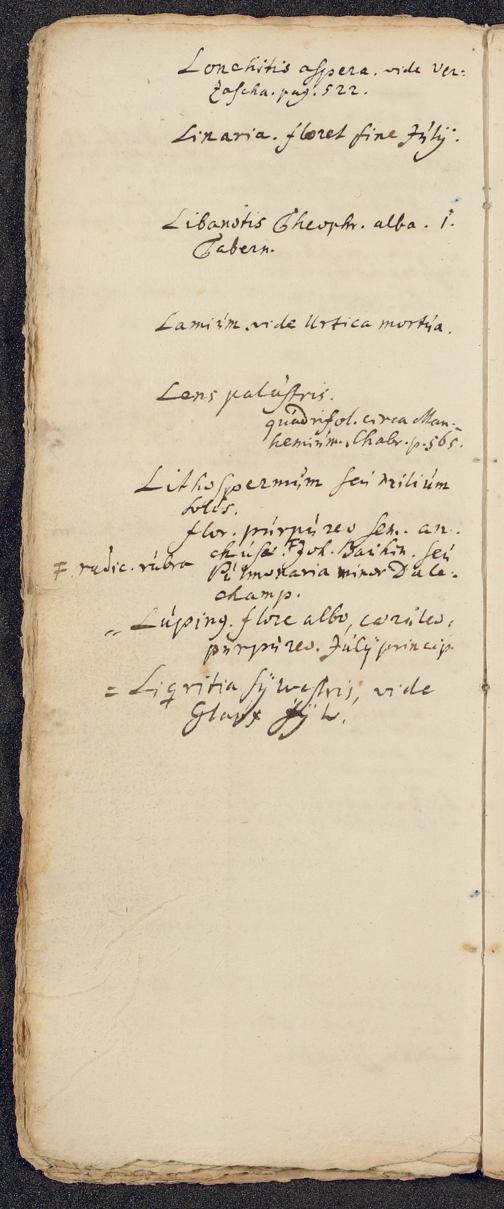 Lonchitis aspera. vide Ver-
zascha. pag. 522.
Linaria. floret fine Julÿ.
Libanotis Theophr. alba. 1.
Tabern.
Lamium. vide Urtica mortua.
Lens palustris.
quadrifol. circa Man-
hemium. Chabr. p. 565.
Lithospermum seu Milium
solis.
flor. purpureo sem. an-
chusae. ╤ Joh. Bauhin. seu
╤. radic. rubra
Pulmonaria minor Dale-
champ.
„ Lupinq. flore albo, coeruleo,
purpureo. Julÿ princip.
= Liqritia sÿlvestris, vide
Glaux sÿlv.